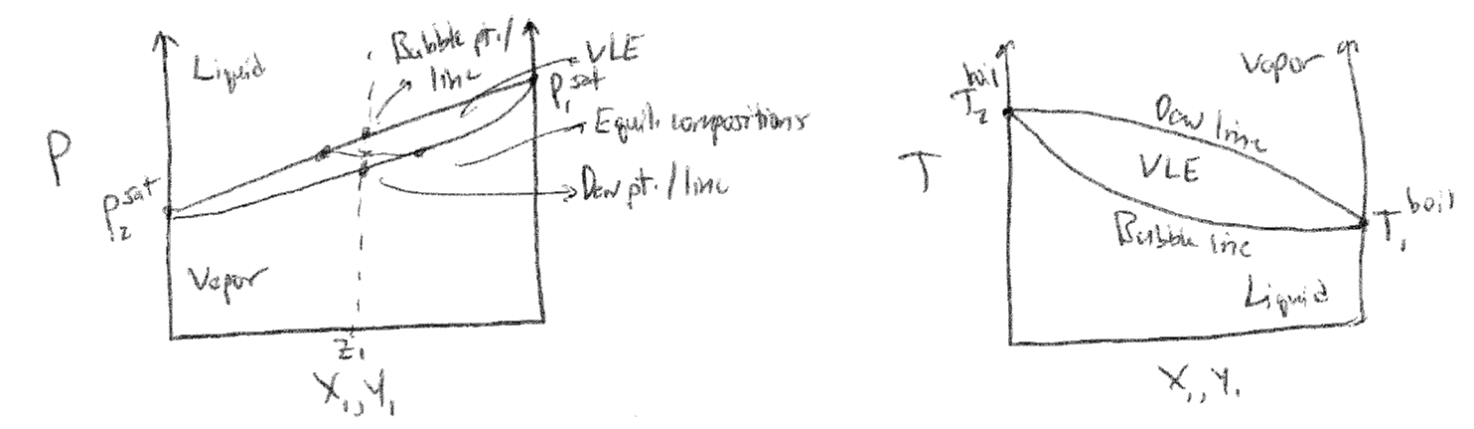 Liquid
Bubble pt./
line
VLE
P₁ˢᵃᵗ
Equil. compositions
P
P₂ˢᵃᵗ
Dew pt./line
Vapor
Z₁
X₁, Y₁
Vapor
T₂ᵇᵒⁱˡ
Dew line
T
VLE
T₁ᵇᵒⁱˡ
Bubble line
Liquid
X₁, Y₁